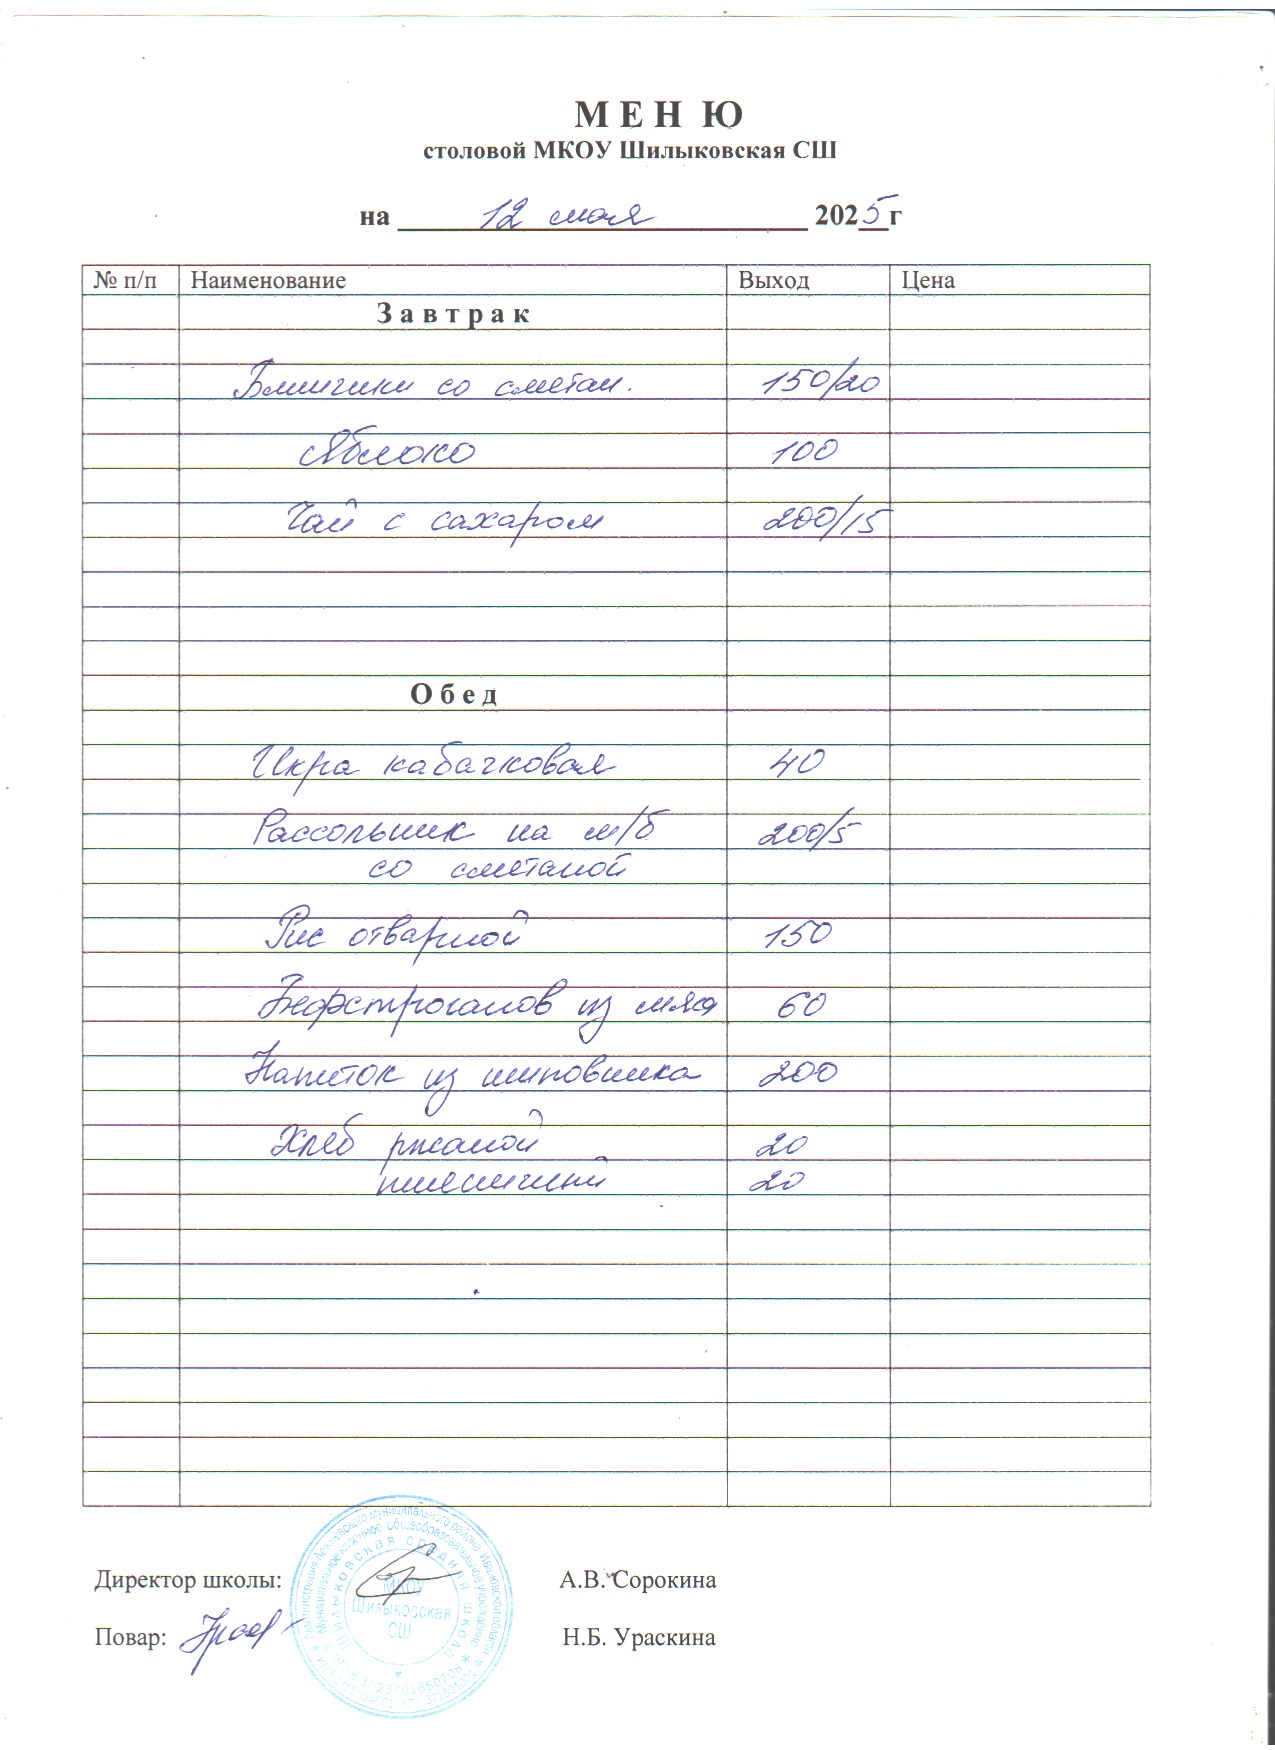 М Е Н Ю
столовой МКОУ Шилыковская СШ
на 12 мая 2025 г
№ п/п Наименование Выход Цена
З а в т р а к
Блинчики со сметан. 150/20
Яблоко 100
Чай с сахаром 200/15
О б е д
Икра кабачковая 40
Рассольник на м/б 200/5
со сметаной
Рис отварной 150
Бефстроганов из мяса 60
Напиток из шиповника 200
Хлеб ржаной 20
пшеничный 20
Директор школы: А.В. Сорокина
Повар: Н.Б. Ураскина
МКОУ
Шилыковская
СШ